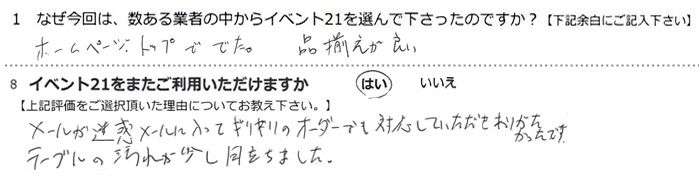 1 なぜ今回は、数ある業者の中からイベント21を選んで下さったのですか？【下記余白にご記入下さい】
ホームページ.トップででた。 品揃えが良い
8 イベント21をまたご利用いただけますか はい いいえ
【上記評価をご選択頂いた理由についてお教え下さい。】
メールが迷惑メールに入ってギリギリのオーダーでも対応していただきありがたかったです
テーブルの汚れが少し目立ちました。